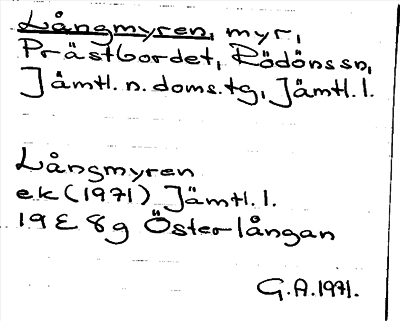 Långmyren, myr,
Prästbordet, Rödöns sn,
Jämtl. n. doms. tg, Jämtl. l.
Långmyren
ek (1971) Jämtl. l.
19 E 8g Österlångan
G.A. 1971.